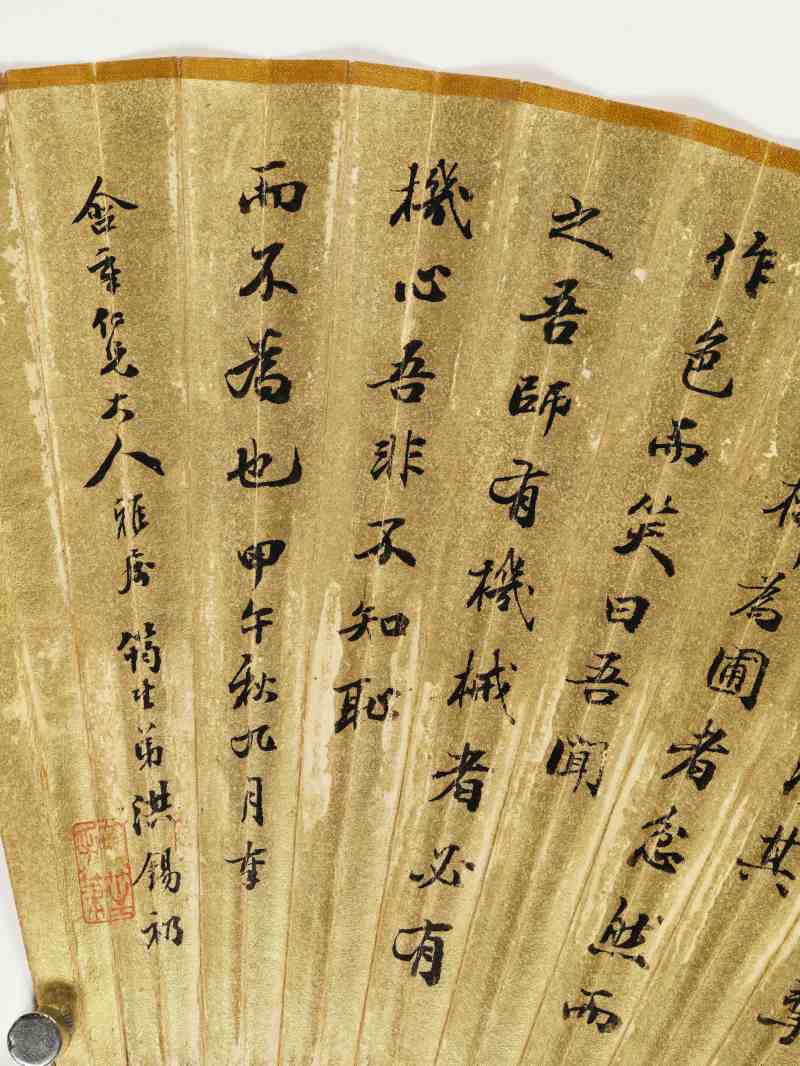 其
為圃者忿然而
作色而笑曰吾聞
之吾師有機械者必有
機心吾非不知恥
而不為也甲午秋九月奉
含章仁兄大人雅屬 筠生弟洪錫礽